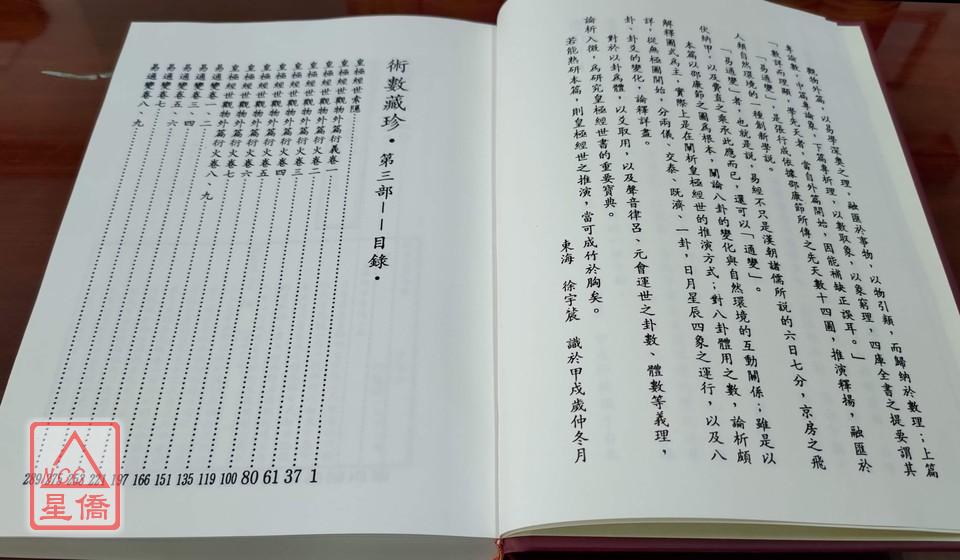 觀物外篇,以易學深奧之理,融匯於事物,以物引類,而歸納於數理;上篇
專論數,中篇專論象,下篇專析理,以數取象,以象窮理,四庫全書之提要謂其
「數詳而理顯,學先天者,當自外篇開始,因能補缺正誤耳。」
「易通變」,是張行成依據邵康節所傳之先天數十四圖,推演釋揚,融匯於
人類自然環境的一種創新學說。
「易通變」者,也就是說,易經不只是漢朝諸儒所說的六日七分,京房之飛
伏納甲,以及費直之乘承此應而已,還可以「通變」。
本篇以邵康節之圖爲根本,闡論八卦的變化與自然環境的互動關係;雖是以
解釋圖式爲主,實際上是在闡析皇極經世的推演方式;對八卦體用之數,論析頗
詳,從無極圖開始,分兩儀、交泰、既濟、一卦,日月星辰四象之運行,以及八
卦、卦爻的變化,論釋詳盡。
對於以卦爲體,以爻取用,以及聲音律呂、元會運世之卦數、體數等義理,
論析入微,爲研究皇極經世書的重要寶典。
若能熟研本篇,則皇極經世之推演,當可成竹於胸矣。
東海 徐宇辳 識於甲戌歲仲冬月
術數藏珍・第三部——目錄・
皇極經世索隱 1
皇極經世觀物外篇衍義卷一 37
皇極經世觀物外篇衍义卷二 61
皇極經世觀物外篇衍义卷三 80
皇極經世觀物外篇衍义卷四 100
皇極經世觀物外篇衍义卷五 119
皇極經世觀物外篇衍义卷六 135
皇極經世觀物外篇衍义卷七 151
皇極經世觀物外篇衍义卷八、九 166
易通變卷一、二 197
易通變卷三、四 221
易通變卷五、六 258
易通變卷七 275
易通變卷八、九 289
NCC
星僑